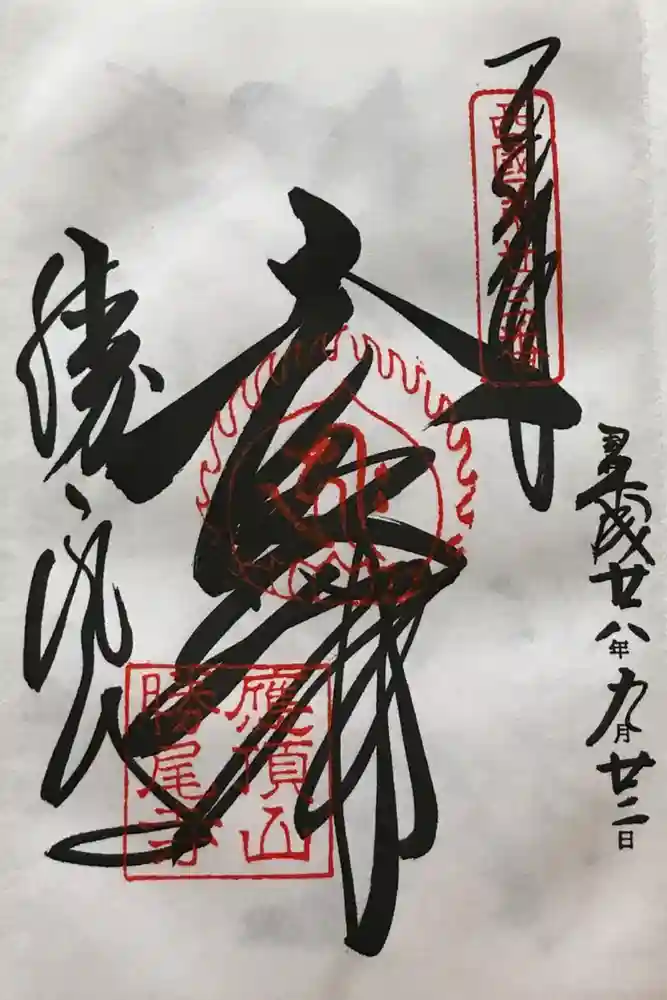 平成廿八年九月廿二日
奉拝
西國第廿三番
勝尾寺
應頂山
勝尾寺